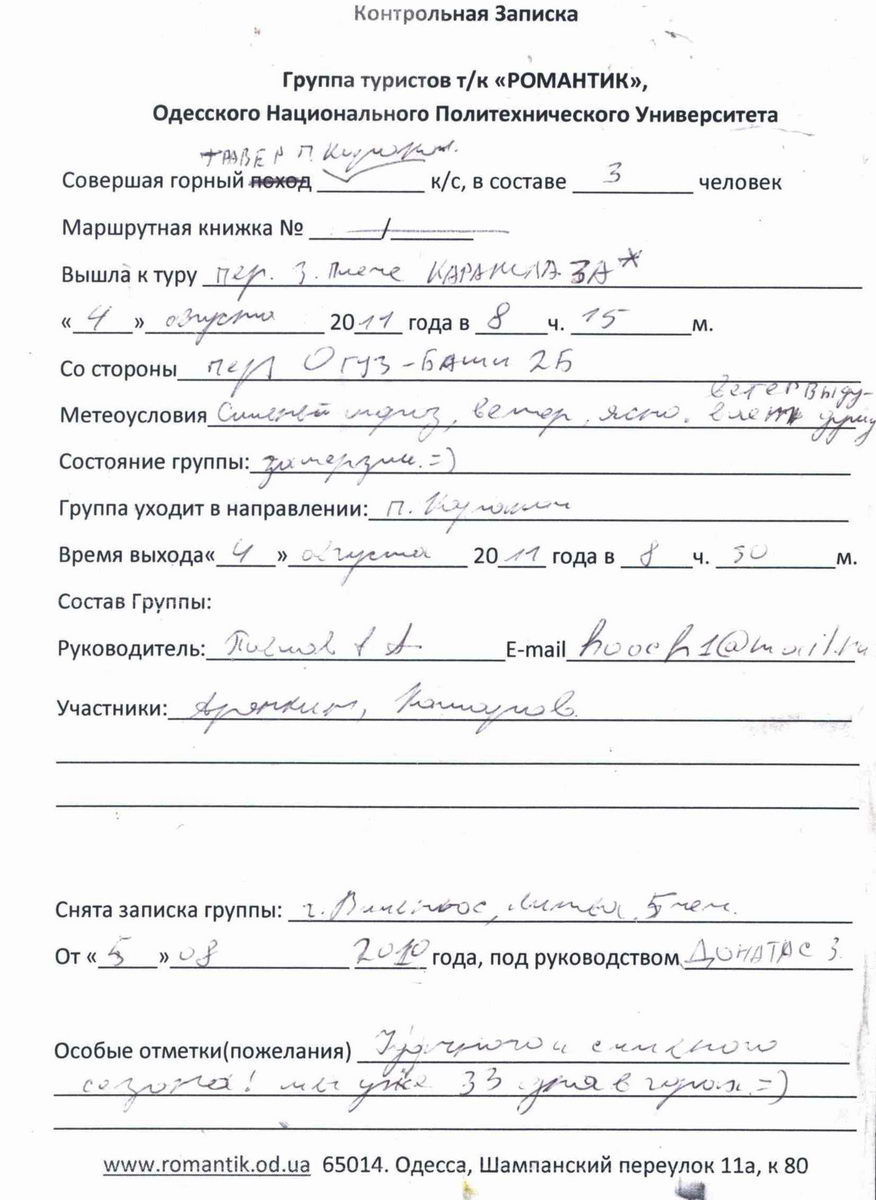 Контрольная Записка
Группа туристов т/к «РОМАНТИК»,
Одесского Национального Политехнического Университета
ТРАВЕРС п.
Совершая горный поход к/с, в составе 3 человек
Маршрутная книжка № /
Вышла к туру пер. З. Плече КАРАКАЯ 3А*
«4» августа 2011 года в 8 ч. 15 м.
Со стороны пер ОГУЗ-БАШИ 2Б
ветер выду-
Метеоусловия Сильный ветер, ясно.
Состояние группы: замерзли =)
Группа уходит в направлении: п.
Время выхода «4» августа 2011 года в 8 ч. 50 м.
Состав Группы:
Руководитель: А E-mail hooch1@mail.ru
Участники:
Снята записка группы: г. Вильнюс, Литва, 5 чел.
От «5» 08 2010 года, под руководством ДОНАТАС З.
Особые отметки(пожелания) Удачного и снежного
сезона! мы уже 33 дня в горах =)
www.romantik.od.ua 65014. Одесса, Шампанский переулок 11а, к 80